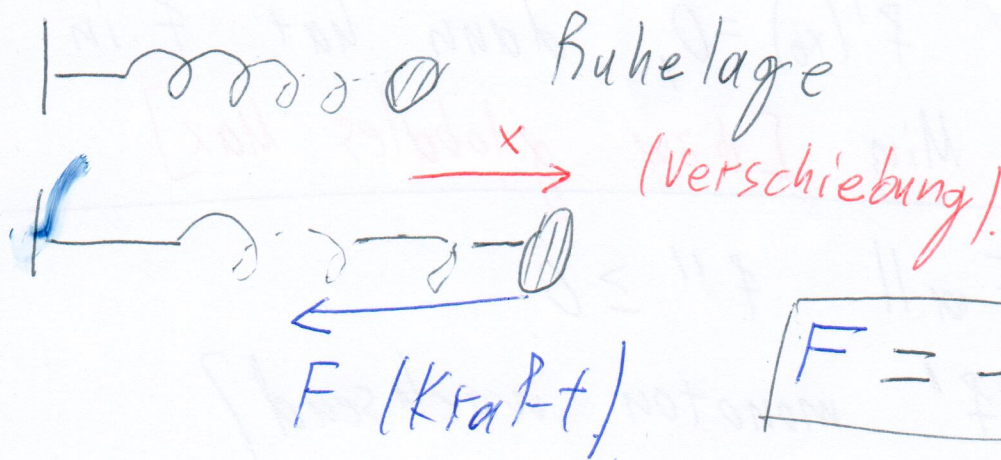 Ruhelage
x
(Verschiebung)
F (Kraft)
F = -